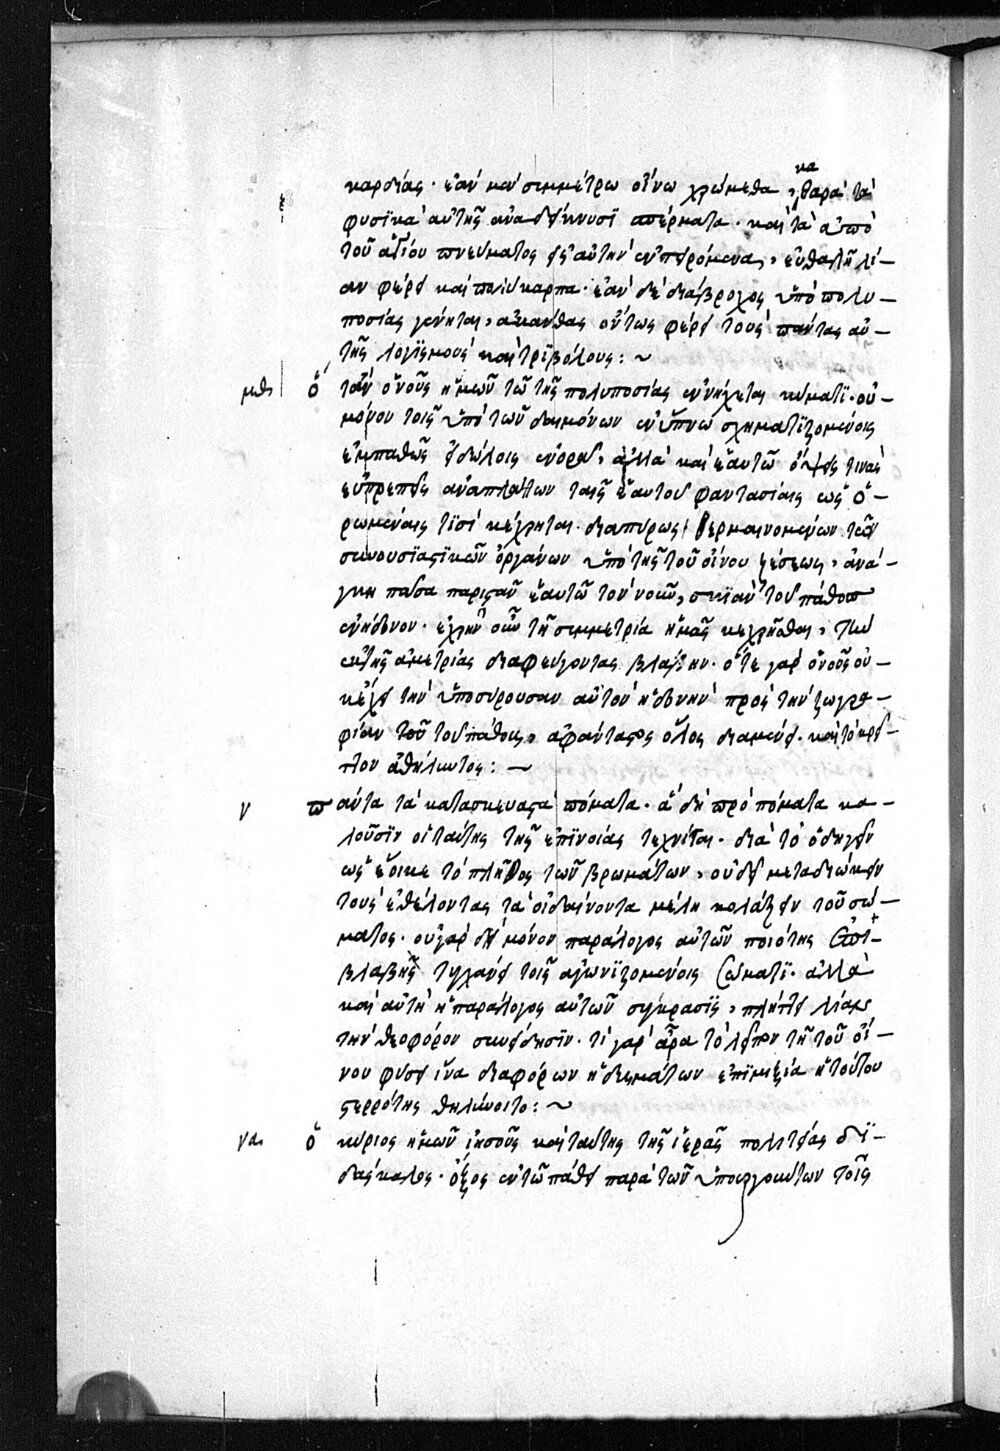 καρδίας· ἐὰν μὲν συμμέτρω οἴνω χρώμεθα, καθαρὰ τὰ
φυσϊκὰ αὐτῆς ἀναδείκνυσϊ σπέρματα· καὶ τὰ ἀπὸ
τοῦ ἁγίου πνεύματος εἰς αὐτὴν ἐνσπειρόμενα, εὐθαλῆ λί-
αν φέρει καὶ πολύκαρπα· ἐὰν δὲ διάβροχος ὑπὸ πολυ-
ποσίας γένηται, ἀκάνθας οὕτως φέρει τοὺς πάντας αὐ-
τῆς λογϊσμοὺς καὶ τρϊβόλους: ~
μθ ὅταν ὁ νοῦς ἡμῶν τῶ τῆς πολυποσίας ἐννήχεται κύματϊ· οὐ
μόνον τοῖς ὑπὸ τῶν δαιμόνων ἐν ὕπνω σχηματϊζομένοις
ἐμπαθῶς εἰδώλοις ἐνορᾶ, ἀλλὰ καὶ ἑαυτῶ ὄψεις τινὰς
εὐπρεπεῖς ἀναπλάττων ταῖς ἑαυτοῦ φαντασίαις ὡς ἐ-
ρωμέναις τϊσὶ κέχρηται· διαπύρως θερμαινομένων τῶν
συνουσϊαστϊκῶν ὀργάνων ὑπὸ τῆς τοῦ οἴνου ζέσεως, ἀνά-
γκη πᾶσα παριστᾶν ἑαυτῶ τὸν νοῦν, σκϊὰν τοῦ πάθους
ἐνήδονον· ἐχρῆν οὖν τῆ συμμετρία ἡμᾶς κεχρῆσθαι, τὴν
ἐκ τῆς ἀμετρίας διαφεύγοντας βλάβην· ὅτε γὰρ ὁ νοῦς οὐ-
κ ἔχει τὴν ὑποσύρουσαν αὐτὸν ἡδονὴν πρὸς τὴν ζωγρα-
φίαν τοῦ πάθους, ἀφάνταστος ὅλος διαμένει· καὶ τὸ κρεῖ-
ττον ἀθήλυντος: ~
ν πάντα τὰ κατασκευαστὰ πόματα· ἃ δὴ προπόματα κα-
λοῦσϊν οἱ ταύτης τῆς ἐπϊνοίας τεχνίται· διὰ τὸ ὁδηγεῖν
ὡς ἔοικε τὸ πλῆθος τῶν βρωμάτων, οὐ δεῖ μεταδιώκειν
τοὺς ἐθέλοντας τὰ οἰδαίνοντα μέλη κολάζειν τοῦ σώ-
ματος· οὐ γὰρ δὴ μόνον παράλογος αὐτῶν ποιότης ἐπι-
βλαβὴς τυγχάνει τοῖς ἀγωνϊζομένοις σώματϊ· ἀλλὰ
καὶ αὐτὴ ἡ παράλογος αὐτῶν σύγκρασϊς, πλήττει λίαν
τὴν θεοφόρον συνείδησϊν· τί γὰρ ἄρα τὸ λεῖπον τῆ τοῦ οἴ-
νου φύσει ἵνα διαφόρων ἡδυσμάτων ἐπϊμιξία ἡ τούτου
στερρότης θηλύνοιτο: ~
να ὁ κύριος ἡμῶν ἰησοῦς καὶ ταύτης τῆς ἱερᾶς πολιτείας δϊ-
δάσκαλος· ὄξος ἐν τῶ πάθει παρὰ τῶν ὑπουργούντων τοῖς